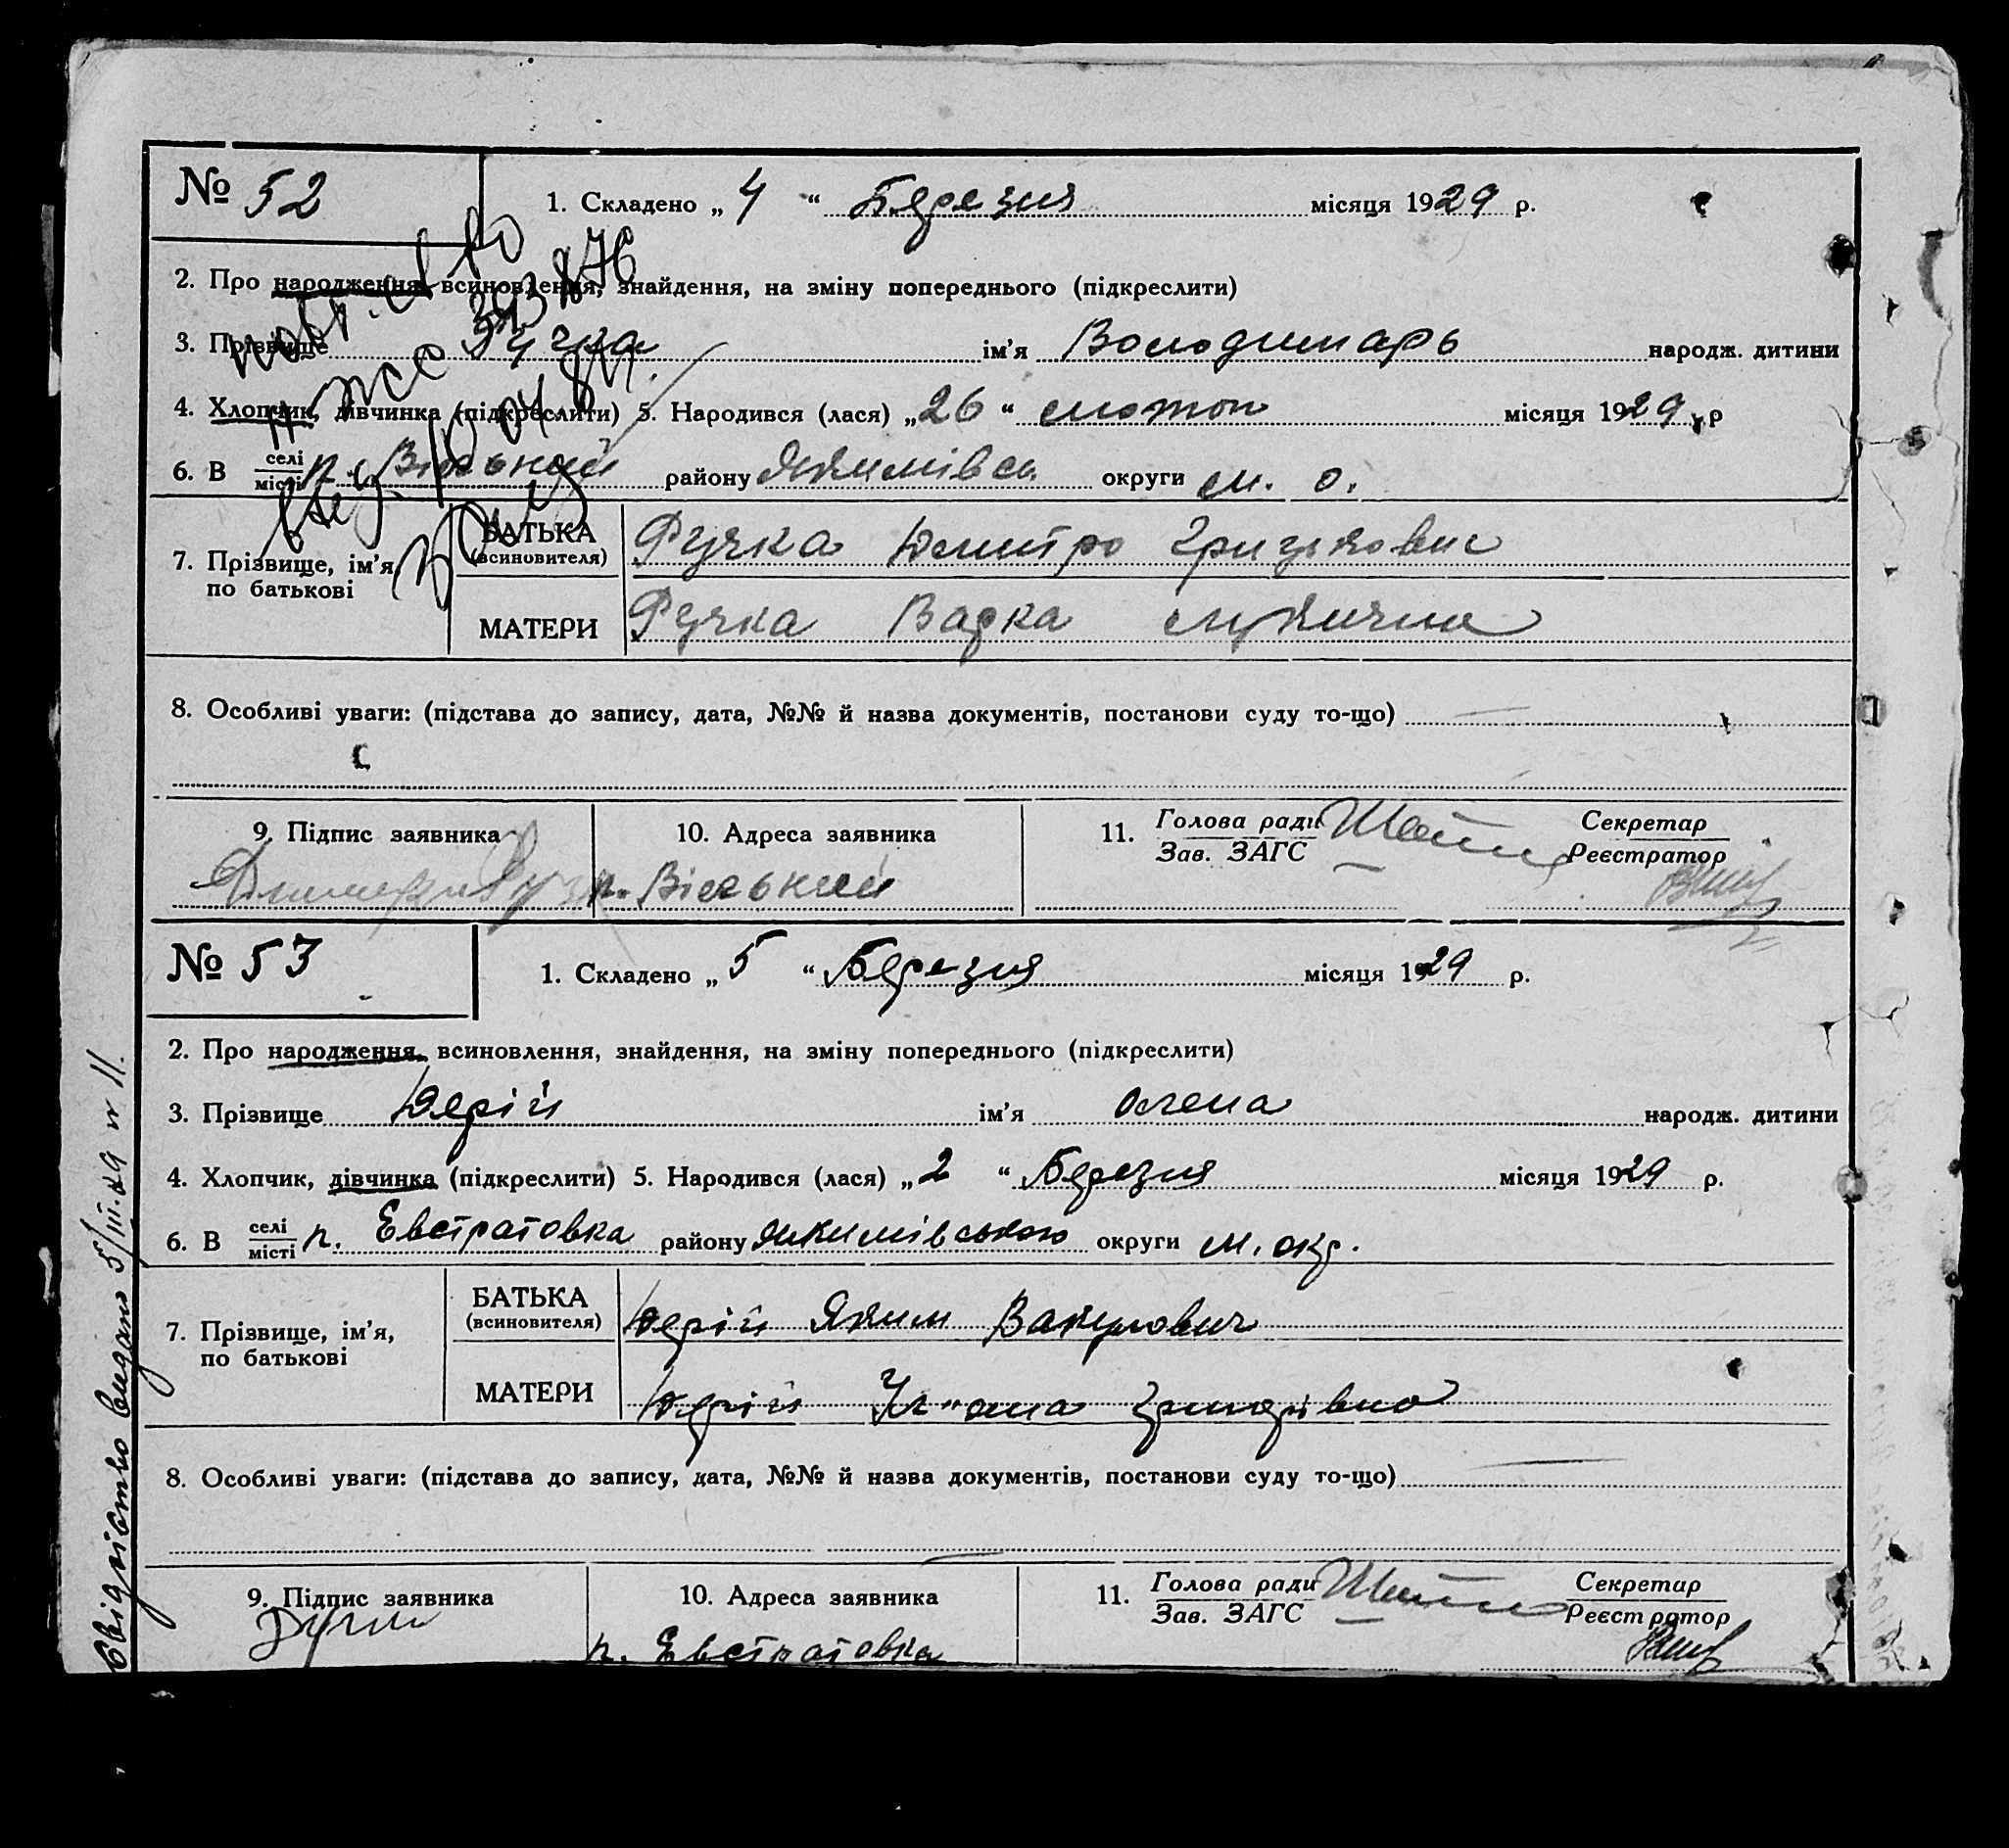 № 52
1. Складено „ 4 “ Березня місяця 1929 р.
2. Про народження, всиновлення, знайдення, на зміну попереднього (підкреслити)
3. Прізвище Ручка ім'я Володимарь народж. дитини
4. Хлопчик, дівчинка (підкреслити) 5. Народився (лася) „26“ лютого місяця 1929 р
6. В селі місті п. Вільний району Якимівськ. округи М. о.
7. Прізвище, ім'я по батькові
БАТЬКА (всиновителя) Ручка Дмитро Грицькович
МАТЕРИ Ручка
8. Особливі уваги: (підстава до запису, дата, №№ й назва документів, постанови суду то-що)
9. Підпис заявника 10. Адреса заявника 11. Голова ради Зав. ЗАГС Секретар Реєстратор
п. Вільний
№ 53
1. Складено „ 5 “ Березня місяця 1929 р.
2. Про народження, всиновлення, знайдення, на зміну попереднього (підкреслити)
3. Прізвище Дерій ім'я Олена народж. дитини
4. Хлопчик, дівчинка (підкреслити) 5. Народився (лася) „ 2 “ Березня місяця 1929 р.
6. В селі місті п. Евстратовка району Якимівського округи М. окр.
7. Прізвище, ім'я, по батькові
БАТЬКА (всиновителя) Дерій Яким Вакулович
МАТЕРИ Дерій Ул"яна Григорівна
8. Особливі уваги: (підстава до запису, дата, №№ й назва документів, постанови суду то-що)
9. Підпис заявника 10. Адреса заявника 11. Голова ради Зав. ЗАГС Секретар Реєстратор
п. Евстратовка
Свідоцтво видано 5/III.29 № 11.